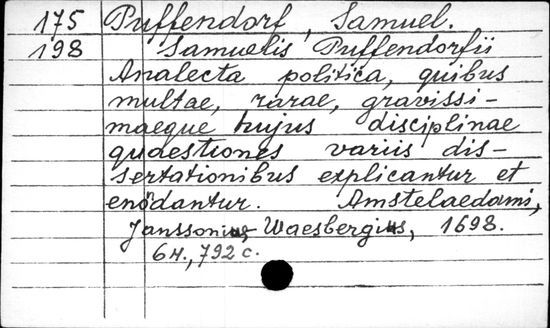 175 Puffendorf, Samuel.
198 Samuelis Puffendorfii
Analecta politica, quibus
multae, rarae, gravissi-
maeque hujus disciplinae
quaestiones variis dis-
sertationibus explicantur et
enodantur. Amstelaedami,
Janssonius, Waesbergius, 1698.
6н., 792 с.